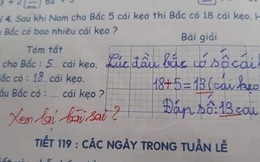 4. Sau khi Nam cho Bắc 5 cái kẹo thì Bắc có 18 cái kẹo. H
Bắc có bao nhiêu cái kẹo ?
Tóm tắt
cho Bắc : 5 cái kẹo.
có: 18 cái kẹo.
ầu Bắc có: ... cái kẹo ?
Bài giải
Lúc đầu Bắc có số cái
18+5=13 (cái kẹo
Đáp số: 13 cái
Xem lại bài sai ?
TIẾT 119 : CÁC NGÀY TRONG TUẦN LỄ